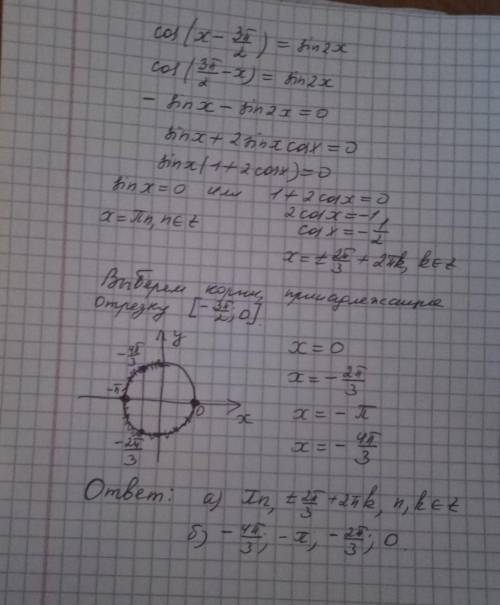 cos(x - 3π/2) = sin2x
cos(3π/2 - x) = sin2x
- sinx - sin2x = 0
sinx + 2sinx cosx = 0
sinx(1 + 2cosx) = 0
sinx = 0 или 1 + 2cosx = 0
2cosx = -1,
x = πn, n∈z cosx = -1/2
x = ± 2π/3 + 2πk, k∈z
Выберем корни, принадлежащие
отрезку [-3π/2; 0].
y
-4π/3
x = 0
x = - 2π/3
-π
0
x
x = - π
-2π/3
x = - 4π/3
Ответ: а) πn, ± 2π/3 + 2πk, n, k∈z
б) - 4π/3; -π, - 2π/3; 0.